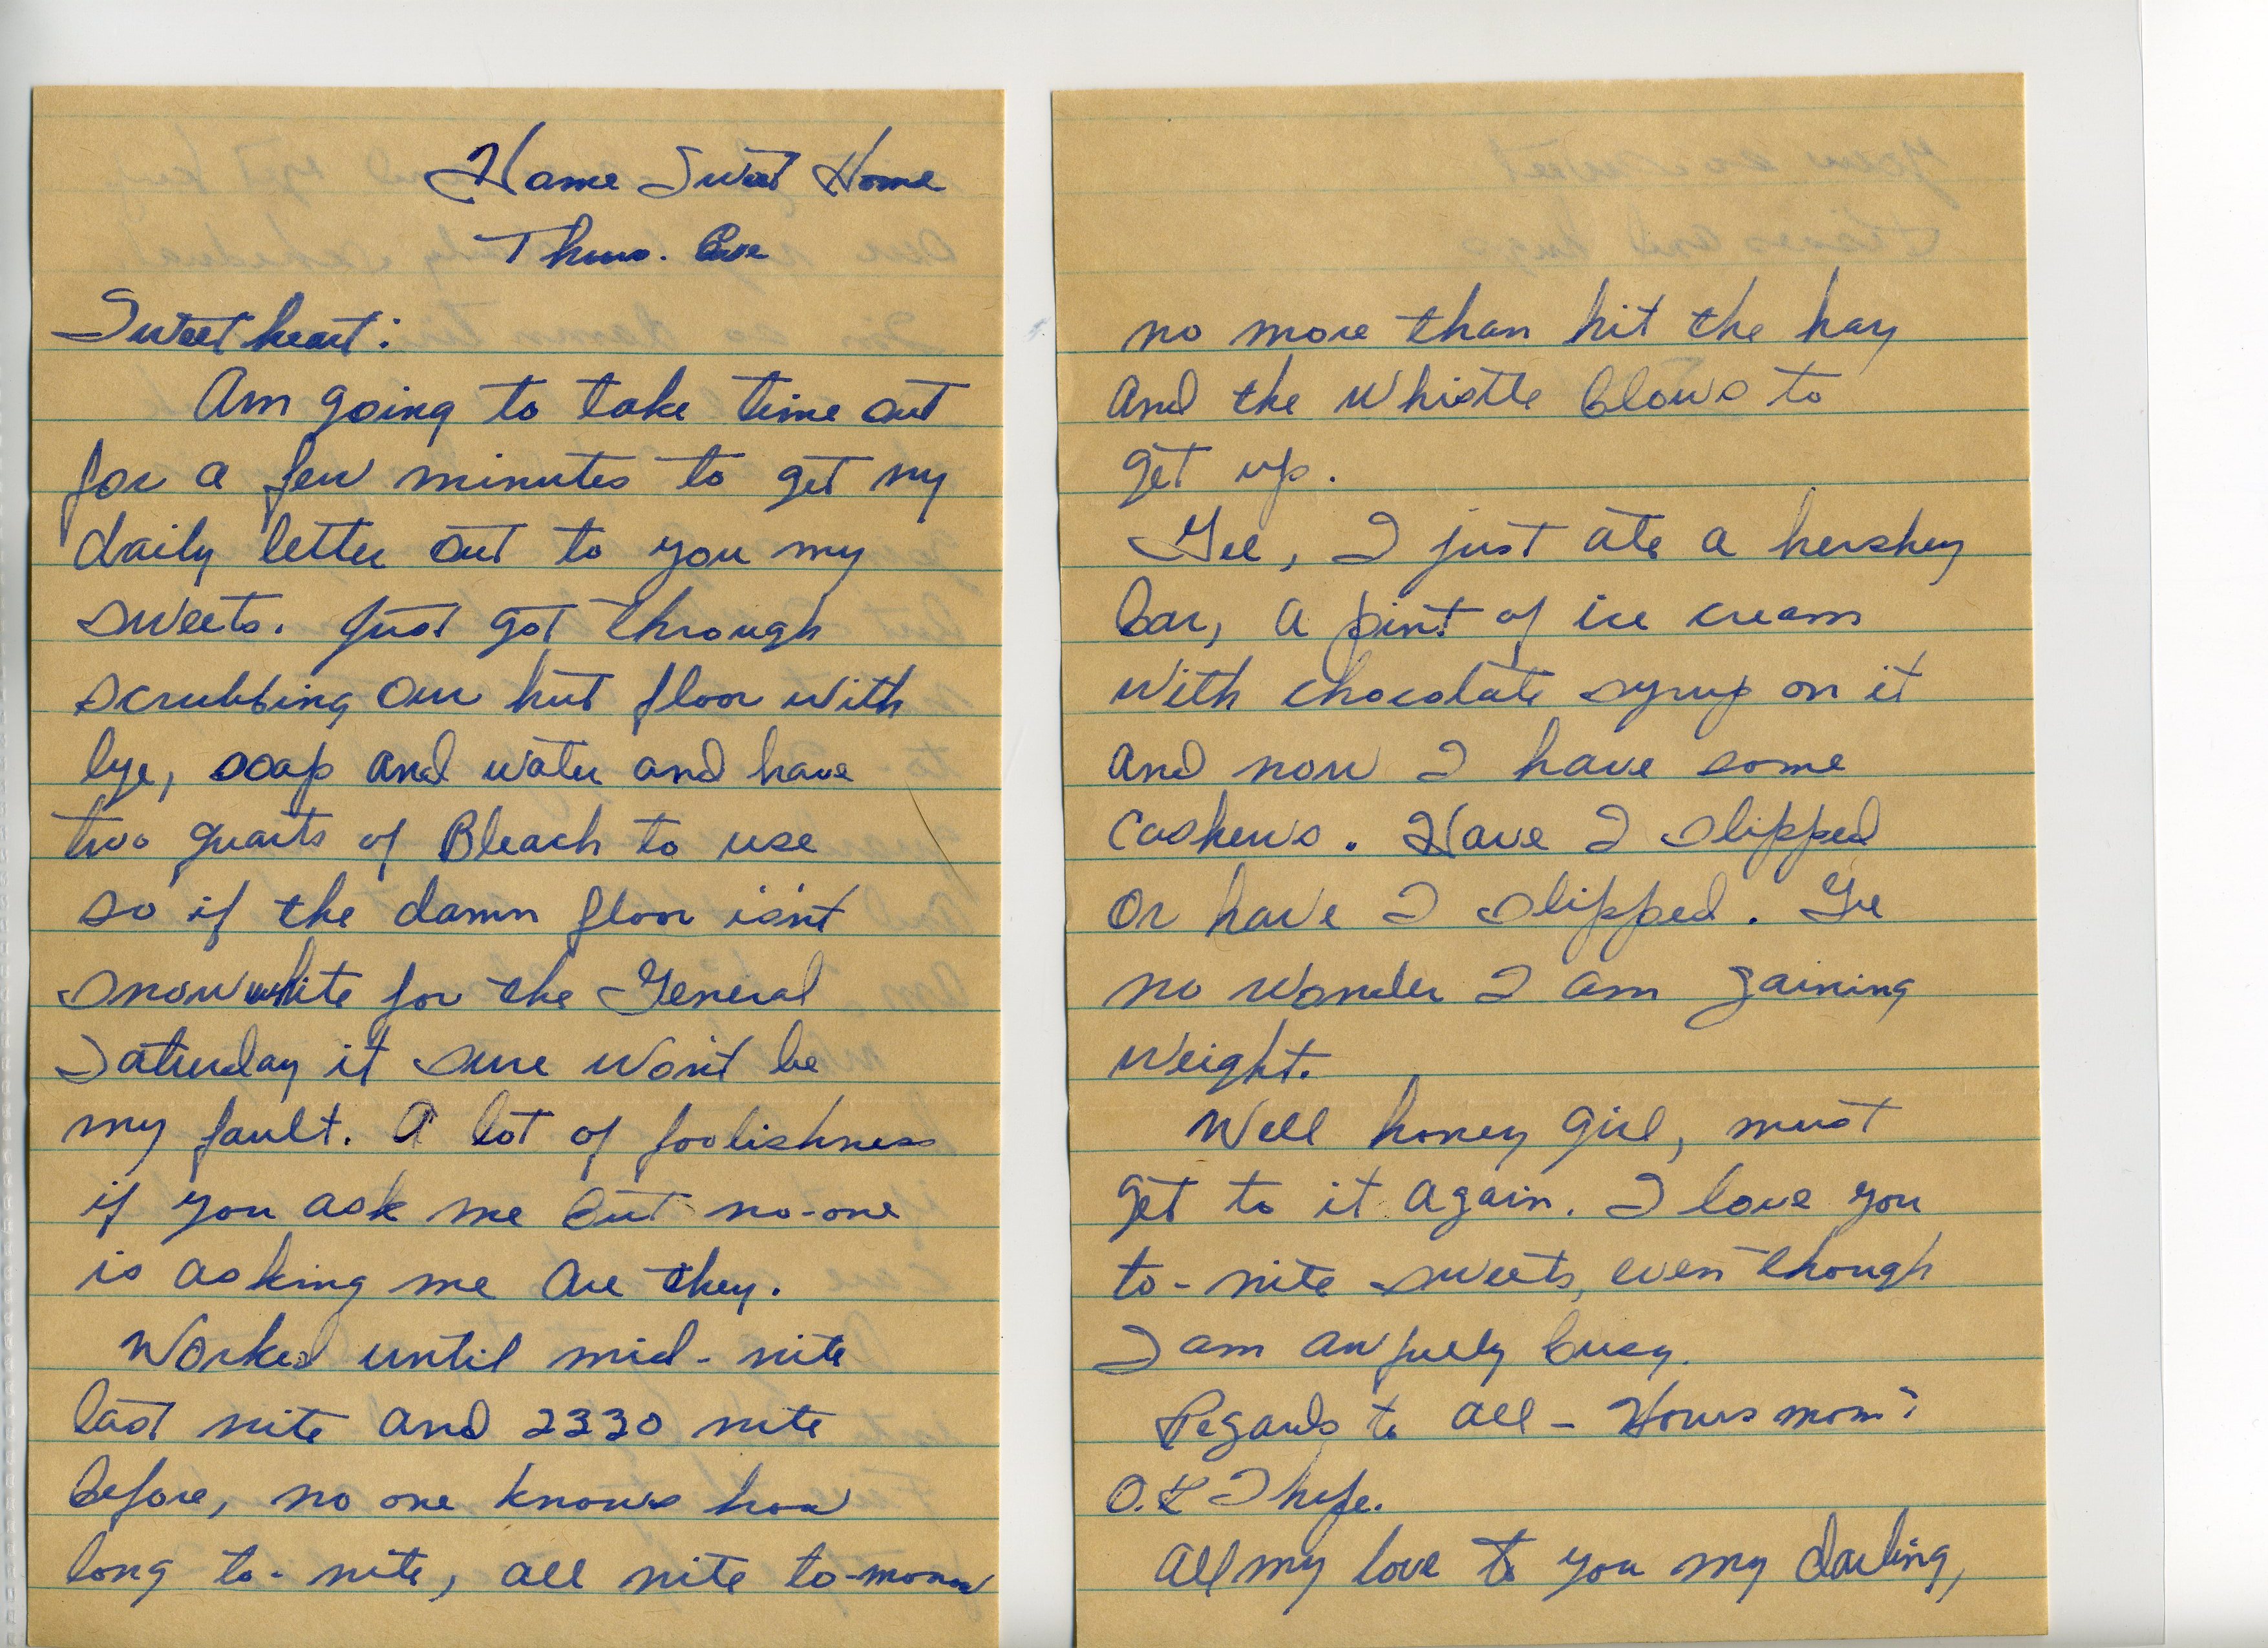 Home Sweet Home
Thurs. Eve
Sweetheart:
Am going to take time out
for a few minutes to get my
daily letter out to you my
sweets. Just got through
scrubbing our hut floor with
lye, soap and water and have
two quarts of Bleach to use
so if the damn floor isn't
snow white for the General
Saturday it sure won't be
my fault. A lot of foolishness
if you ask me but no-one
is asking me are they.
Worked until mid-nite
last nite and 2330 nite
before, no one knows how
long to-nite, all nite to-morrow
no more than hit the hay
and the whistle blows to
get up.
Gee, I just ate a hershey
bar, a pint of ice cream
with chocolate syrup on it
and now I have some
Cashews. Have I slipped
or have I slipped. Ge
no wonder I am gaining
weight.
Well honey girl, must
get to it again. I love you
to-nite sweets, even though
I am awfully busy.
Regards to all - Hows mom?
O.K I hope.
All my love to you my darling,